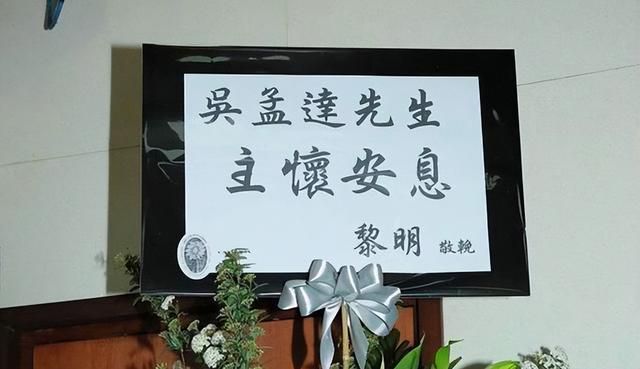 吳孟達先生
主懷安息
黎明 敬輓